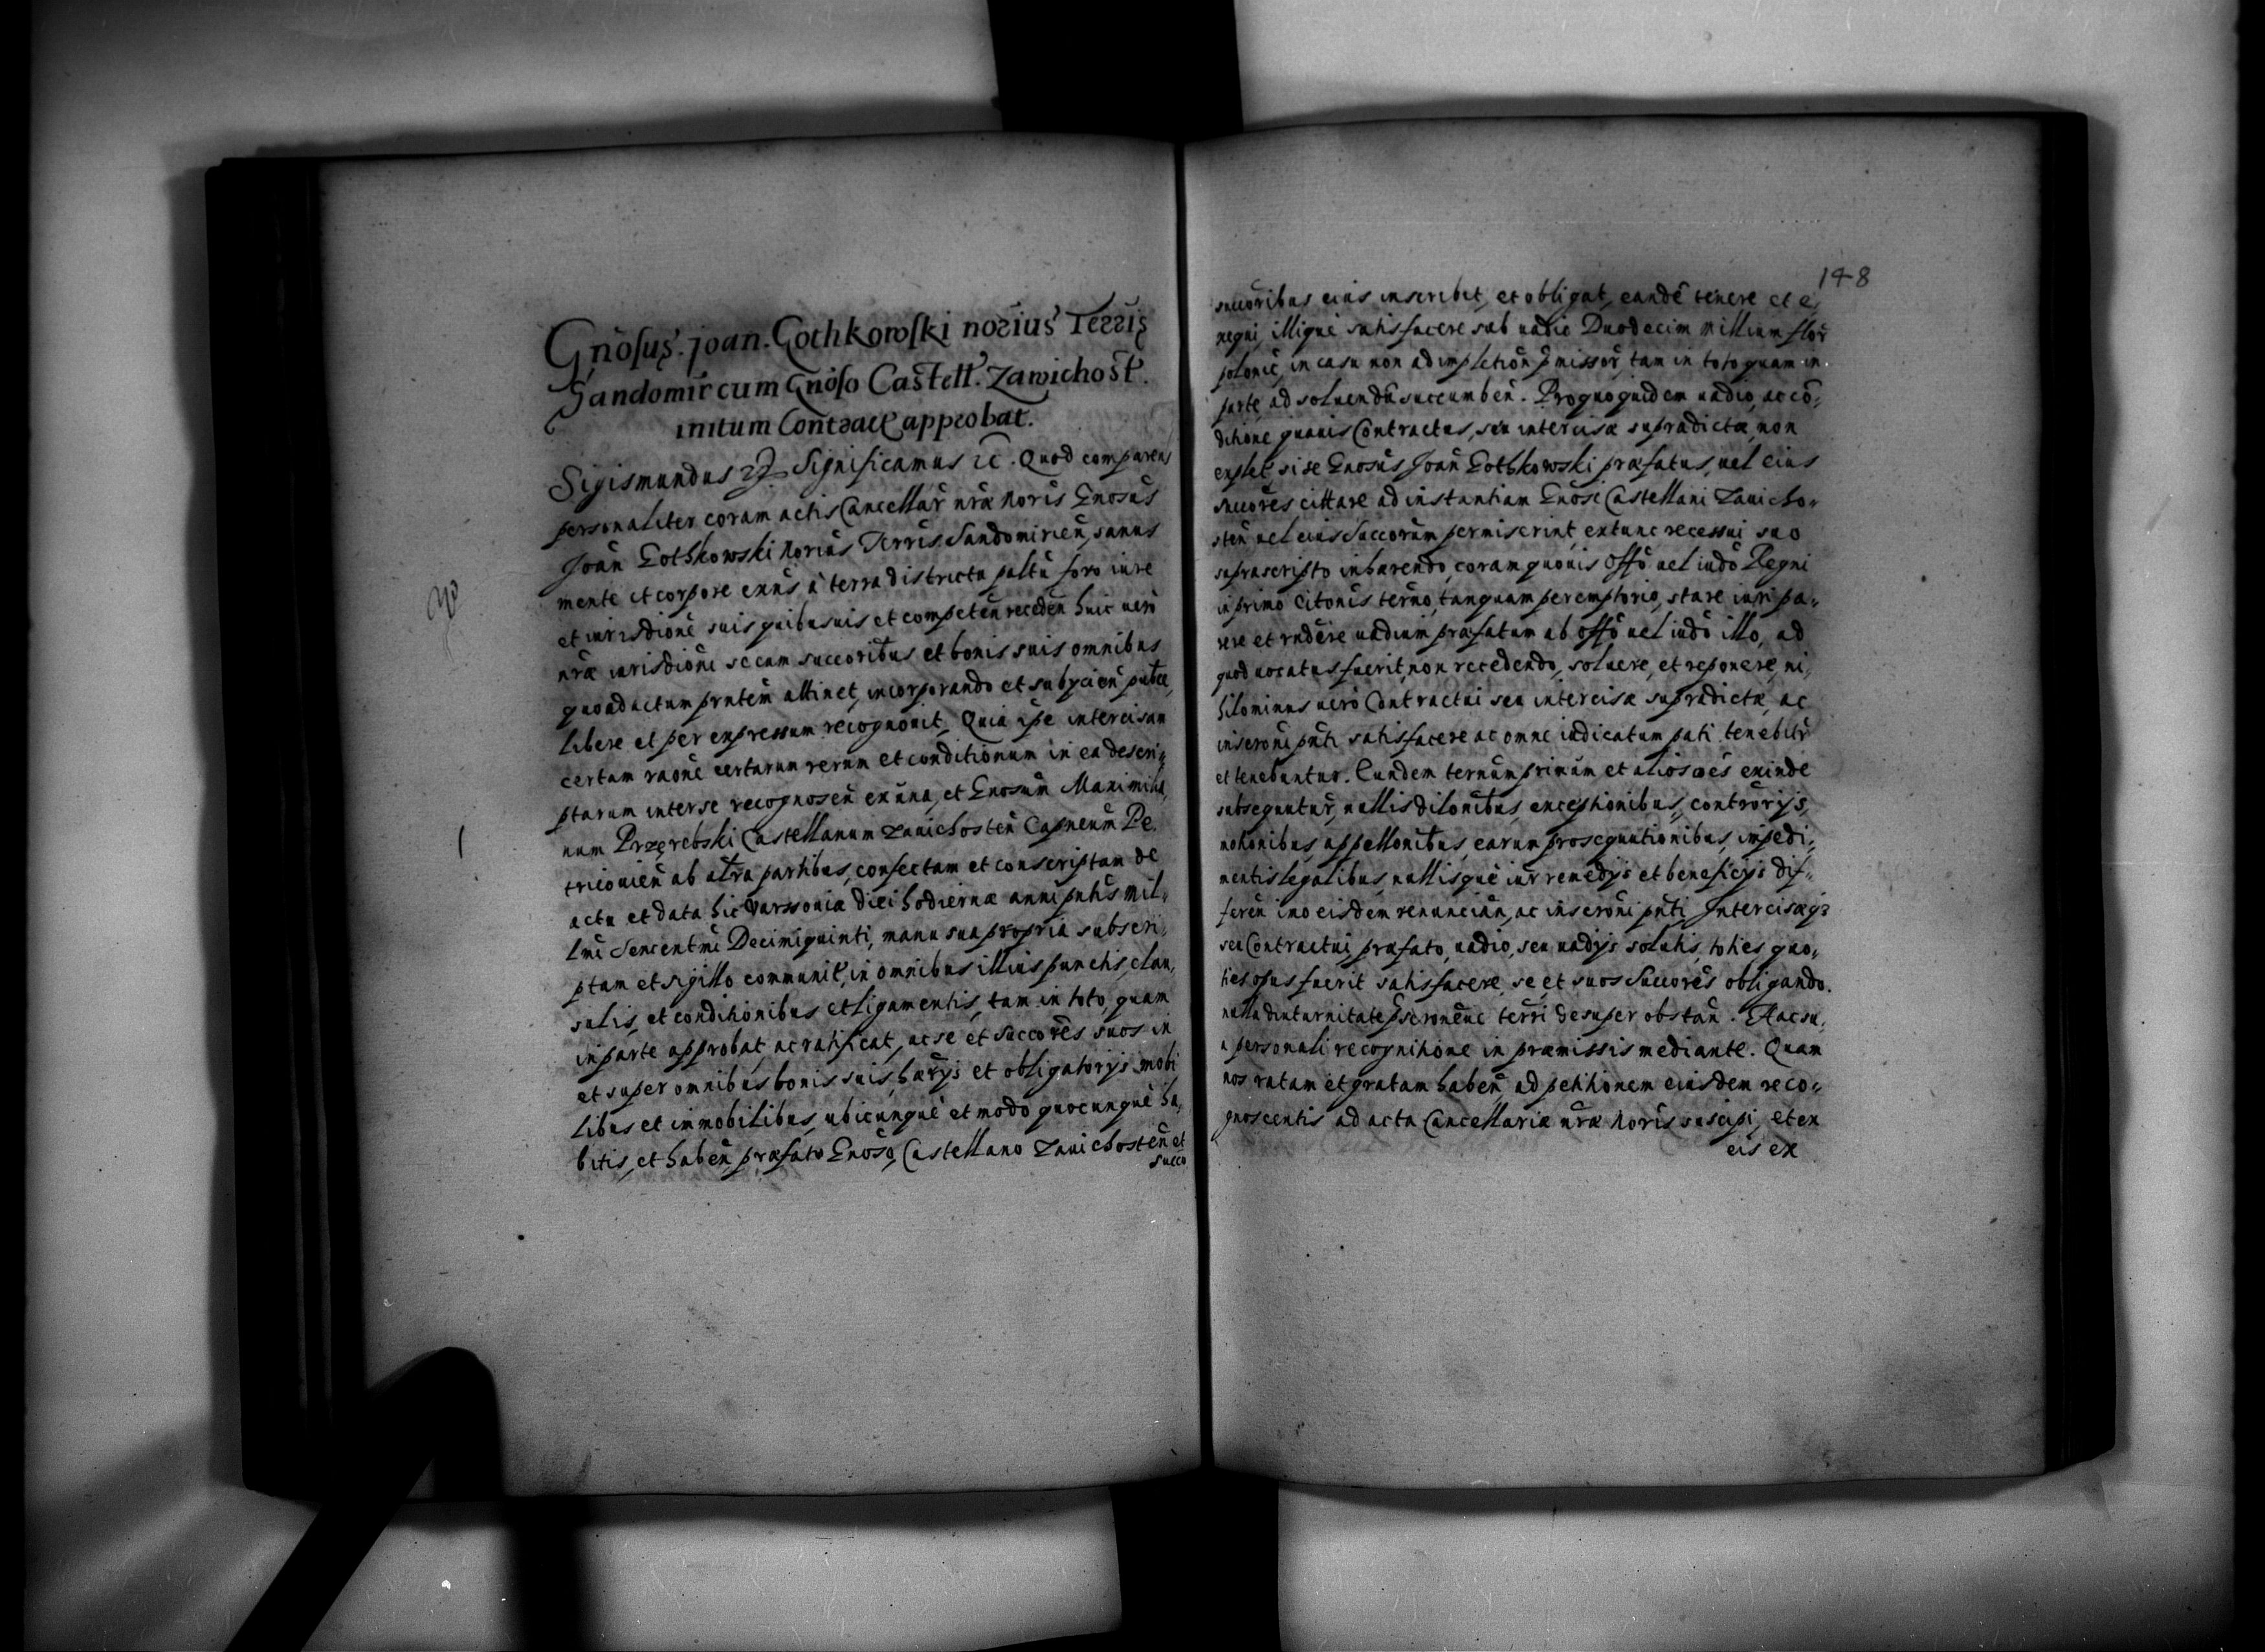 Gnosus. Joan. Gothkowski norius Terris
Sandomir cum Gnoso Castell. Zawichost.
initum Contract approbat.
Sigismundus Significamus &c. Quod comparens
personaliter coram actis Cancellar nræ Noris Gnosus
Joan Gothkowski Norius Terris Sandomirien, sanus
mente et corpore exns à terra districtu paltu foro iure
et iurisdione suis quibusuis et competen receden huic uero
nræ iurisdioni se cum succoribus et bonis suis omnibus
quo ad actum prntem attinet, incorporando et subycien pubce,
libere et per expressum recognouit. Quia ipe intercisam
certam raone certarum rerum et conditionum in ea descri„
ptarum inter se recognoscen ex una, et Gnosum Maximilia„
num Przerebski Castellanum Zauichosten Capneum Pe.
tricouien ab altra partibus, confectam et conscriptam de
actu et data hic Varssouiæ diei hodiernæ anni pntis mil„
lmi Sexcentmi Decimiquinti, manu sua propria subscri„
ptam et sigillo communit, in omnibus illius punctis, clau„
sulis, et conditionibus et ligamentis, tam in toto, quam
in parte approbat, ac ratificat, ac se et Succores suos in
et super omnibus bonis suis, hærys et obligatorys mobi
libus et immobilibus, ubicunque et modo quocunque ha„
bitis, et haben, præfato Gnoso, Castellano Zauichosten et
succo
148
succoribus eius inscribit, et obligat, eande tenere et e
xequi, illique satisfacere sub uadio Duodecim Millium flor
polonic, in casu non adimpletion pmissor, tam in toto quam in
parte, ad soluendu succumben. Pro quo quidem uadio, ac co„
ditione quauis Contractus, seu intercisæ supradictæ, non
explet, si se Gnosus Joan Gothkowski præfatus, uel eius
succores, cittare ad instantiam Gnosi Castellani Zauicho„
sten uel eius Succorum permiserint, extunc recessui suo
suprascripto inhærendo, coram quouis Offo uel iudo Regni
in primo Citonis termo, tanquam peremptorio, stare iuri pa„
rere et rndere uadium præfatum ab offo uel iudo illo, ad
quod uocatus fuerit, non recedendo, soluere, et reponere, ni„
hilominus uero Contractui seu intercisæ supradictæ, ac
inscroni pnti satisfacere ac omne iudicatum pati tenebitr
et tenebuntur. Eundem ternum primum et alios oes exinde
subsequutur, nullis dilonibus, exceptionibus, controrys,
motionibus, appellonibus, earum prosequutionibus, impedi„
mentis legalibus, nullisque iur remedys et beneficys dif„
feren imo eisdem renuncian, ac inscroni pnti Intercisæq3
seu Contractui præfato, uadio, seu uadys solutis, toties quo„
ties opus fuerit satisfacere, se et suos Succores obligando.
nulla diuturnitate Pscronene terri desuper obstan. Hac su„
a personali recognitione in præmissis mediante. Quam
nos ratam et gratam haben, ad petitionem eiusdem reco„
gnoscentis ad acta Cancellariæ nræ Noris suscipi, et ex
eis ex